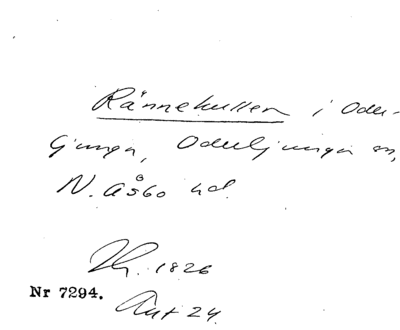 Rännekullen i Oder-
ljunga, Oderljunga sn,
N. Åsbo hd.
Th. 1826
Nr 7294.
Ant 24